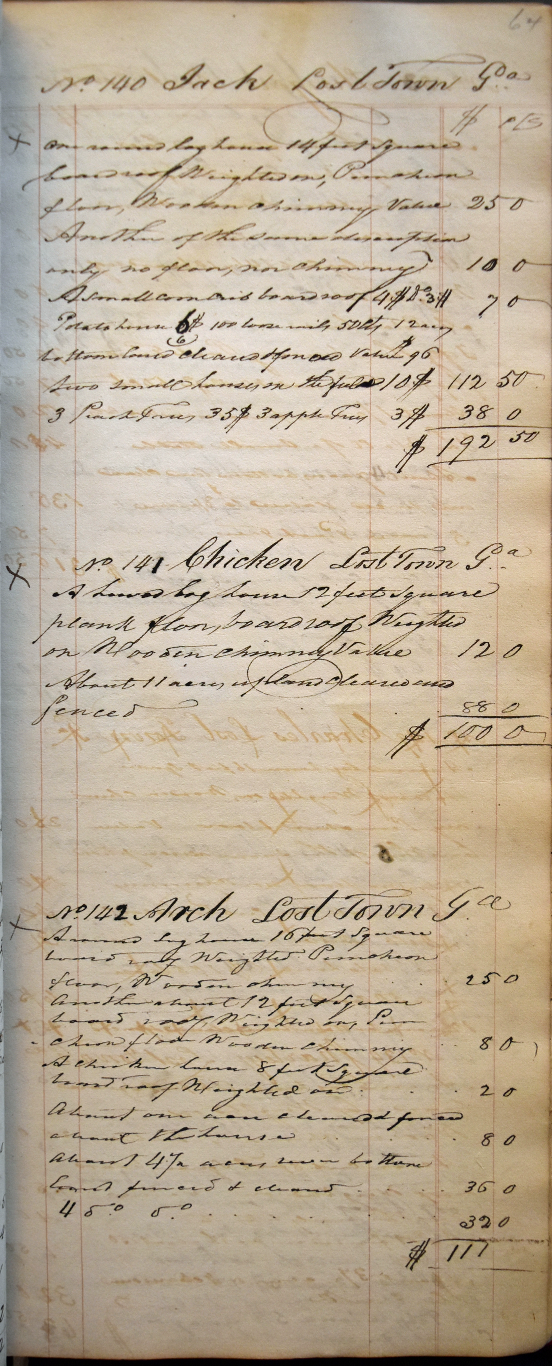 64
No 140 Jack Lost Town Ga
$ cts
x one round log house 14 feet square
board roof Weighted on, Puncheon
floor, Wooden chimney Value 25 0
Another of the same description
only no floor, nor chimney 10 0
A small corn crib board roof 4$ Do 3$ 7 0
Potatoe house 6$ 100 loose rails 50cts 12 acres
bottom land cleared & fenced Value $96
two small houses on the field 10$ 112 50
3 Peach Trees 35$ 3 apple Trees 3$ 38 0
$ 192 50
x No 141 Chicken Lost Town Ga
A hewed log house 12 feet square
plank floor, board roof Weighted
on Wooden chimney Value 12 0
About 11 acres upland cleared and
fenced 88 0
$ 100 0
x No 142 Arch Lost Town Ga
A round log house 16 feet square
board roof Weighted Puncheon
floor, Wooden chimney 25 0
Another about 12 feet square
board roof Weighted on, Pun
cheon floor Wooden chimney 8 0
A chicken house 8 feet square
board roof Weighted on 2 0
About one acre cleared & fenced
about the house 8 0
About 4½ acres river bottom
land fenced & cleared 36 0
4 do do 32 0
$ 111